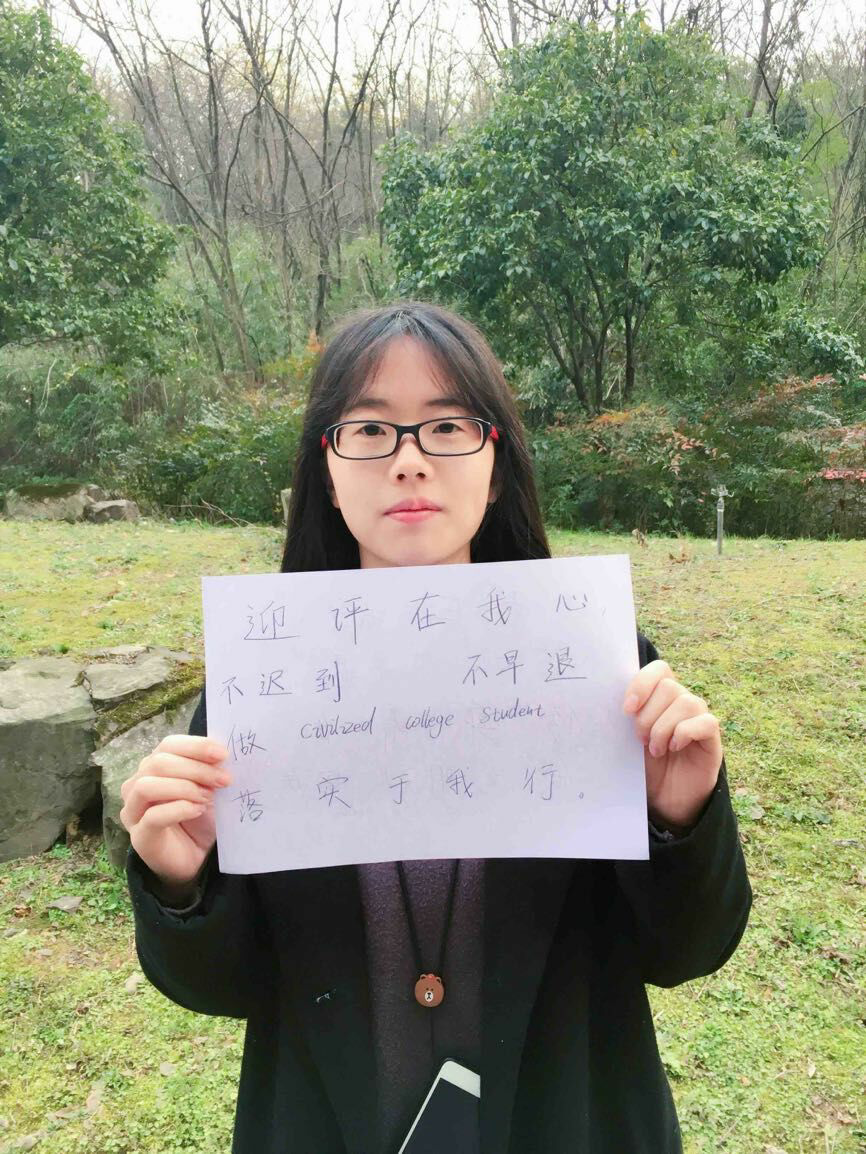 迎评在我心
不迟到 不早退
做 Civilized college student
落实于我行。